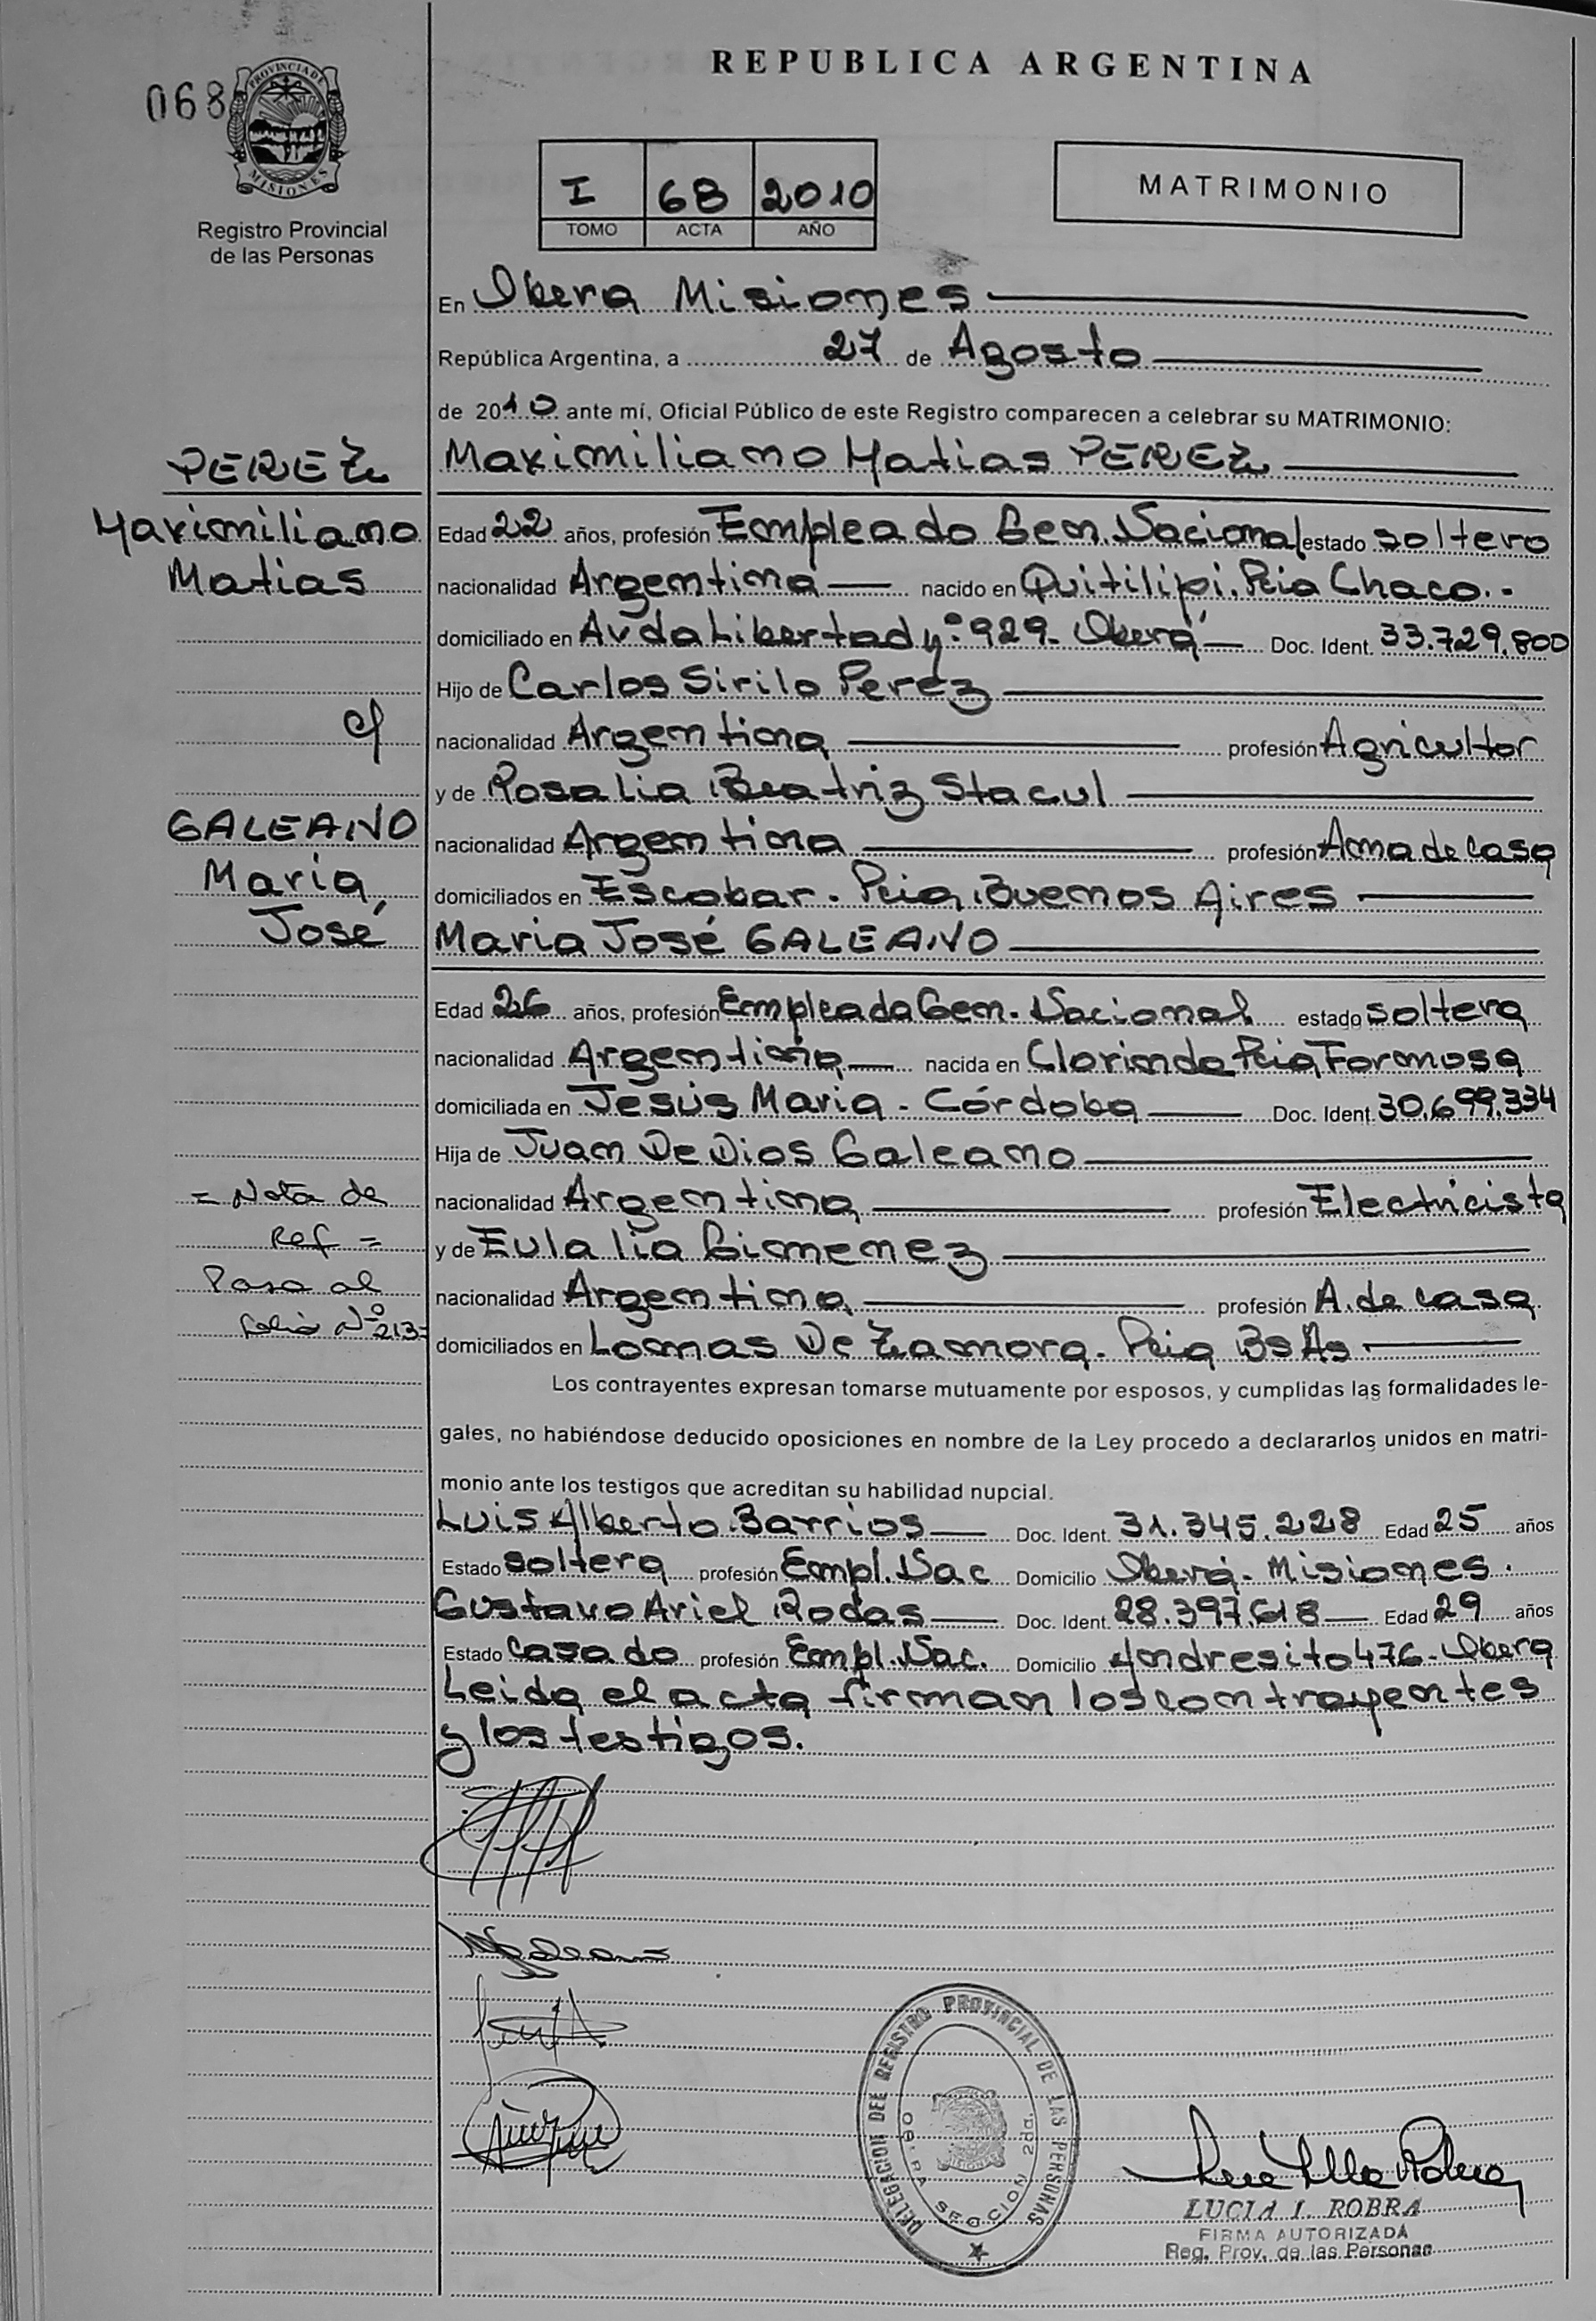 REPUBLICA ARGENTINA
068
PROVINCIA DE
MISIONES
Registro Provincial
de las Personas
I 68 2010
TOMO ACTA AÑO
MATRIMONIO
En Obera Misiones
República Argentina, a 27 de Agosto
de 2010 ante mí, Oficial Público de este Registro comparecen a celebrar su MATRIMONIO:
PEREZ
Maximiliano
Matias
c/
GALEANO
Maria
José
= Nota de
Ref =
Pasa al
folio Nº 213=
Maximiliano Matias PEREZ
Edad 22 años, profesión Empleado Gen. Nacional estado soltero
nacionalidad Argentina nacido en Quitilipi. Pcia Chaco.-
domiciliado en Avda Libertad Nº 929- Oberá Doc. Ident. 33.729.800
Hijo de Carlos Sirilo Perez
nacionalidad Argentina profesión Agricultor
y de Rosalia Beatriz Stacul
nacionalidad Argentina profesión Ama de casa
domiciliados en Escobar. Pcia Buenos Aires
Maria José GALEANO
Edad 26 años, profesión Empleada Gen. Nacional estado soltera
nacionalidad Argentina nacida en Clorinda Pcia Formosa
domiciliada en Jesús Maria - Córdoba Doc. Ident. 30.699.334
Hija de Juan De Dios Galeano
nacionalidad Argentina profesión Electricista
y de Eulalia Gimenez
nacionalidad Argentina profesión A. de casa
domiciliados en Lomas De Zamora. Pcia Bs As
Los contrayentes expresan tomarse mutuamente por esposos, y cumplidas las formalidades le-
gales, no habiéndose deducido oposiciones en nombre de la Ley procedo a declararlos unidos en matri-
monio ante los testigos que acreditan su habilidad nupcial.
Luis Alberto Barrios Doc. Ident. 31.345.228 Edad 25 años
Estado soltera profesión Empl. Nac Domicilio Oberá - Misiones.
Gustavo Ariel Rodas Doc. Ident. 28.397.618 Edad 29 años
Estado casado profesión Empl. Nac. Domicilio Andresito 476- Obera
Leida el acta firman los contrayentes
y los testigos.
DELEGACION DEL REGISTRO PROVINCIAL DE LAS PERSONAS
OBERA SECCION 2da.
LUCIA I. ROBRA
FIRMA AUTORIZADA
Reg. Prov. de las Personas